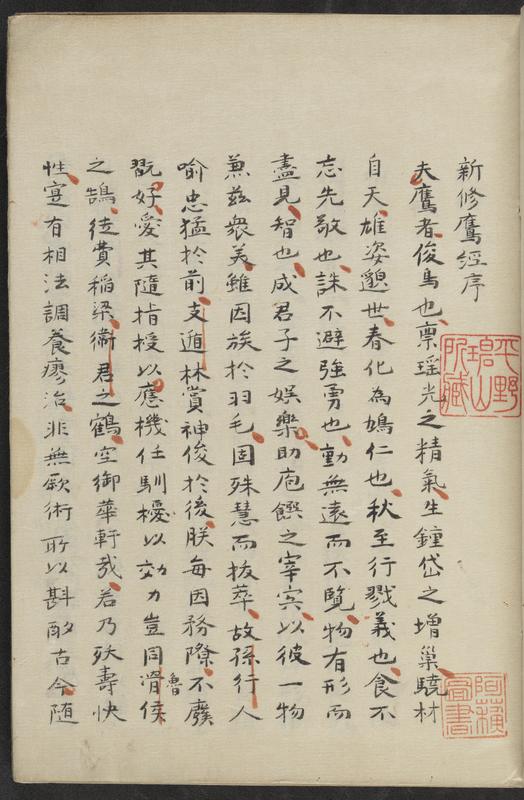 新修鷹經序
夫鷹者俊鳥也禀瑶光之精氣生鍾岱之增巢驍材
自天雄姿邈世春化為鳩仁也秋至行戮義也食不
忘先敬也誅不避強勇也動無遠而不覽物有形而
盡見智也成君子之娯樂助庖饌之宰宾以彼一物
兼兹衆美雖因族於羽毛固殊慧而抜萃故孫行人
喻忠猛於前支遁林賞神俊於後朕每因務隙不廢
翫好愛其隨指授以應機任馴擾以効力豈同滑侯
魯
之鵠徒費稲梁衛君之鶴空御華軒㢤若乃殀壽快
性寔有相法調養療治非無厥術所以斟酌古今随
平野碧山所蔵